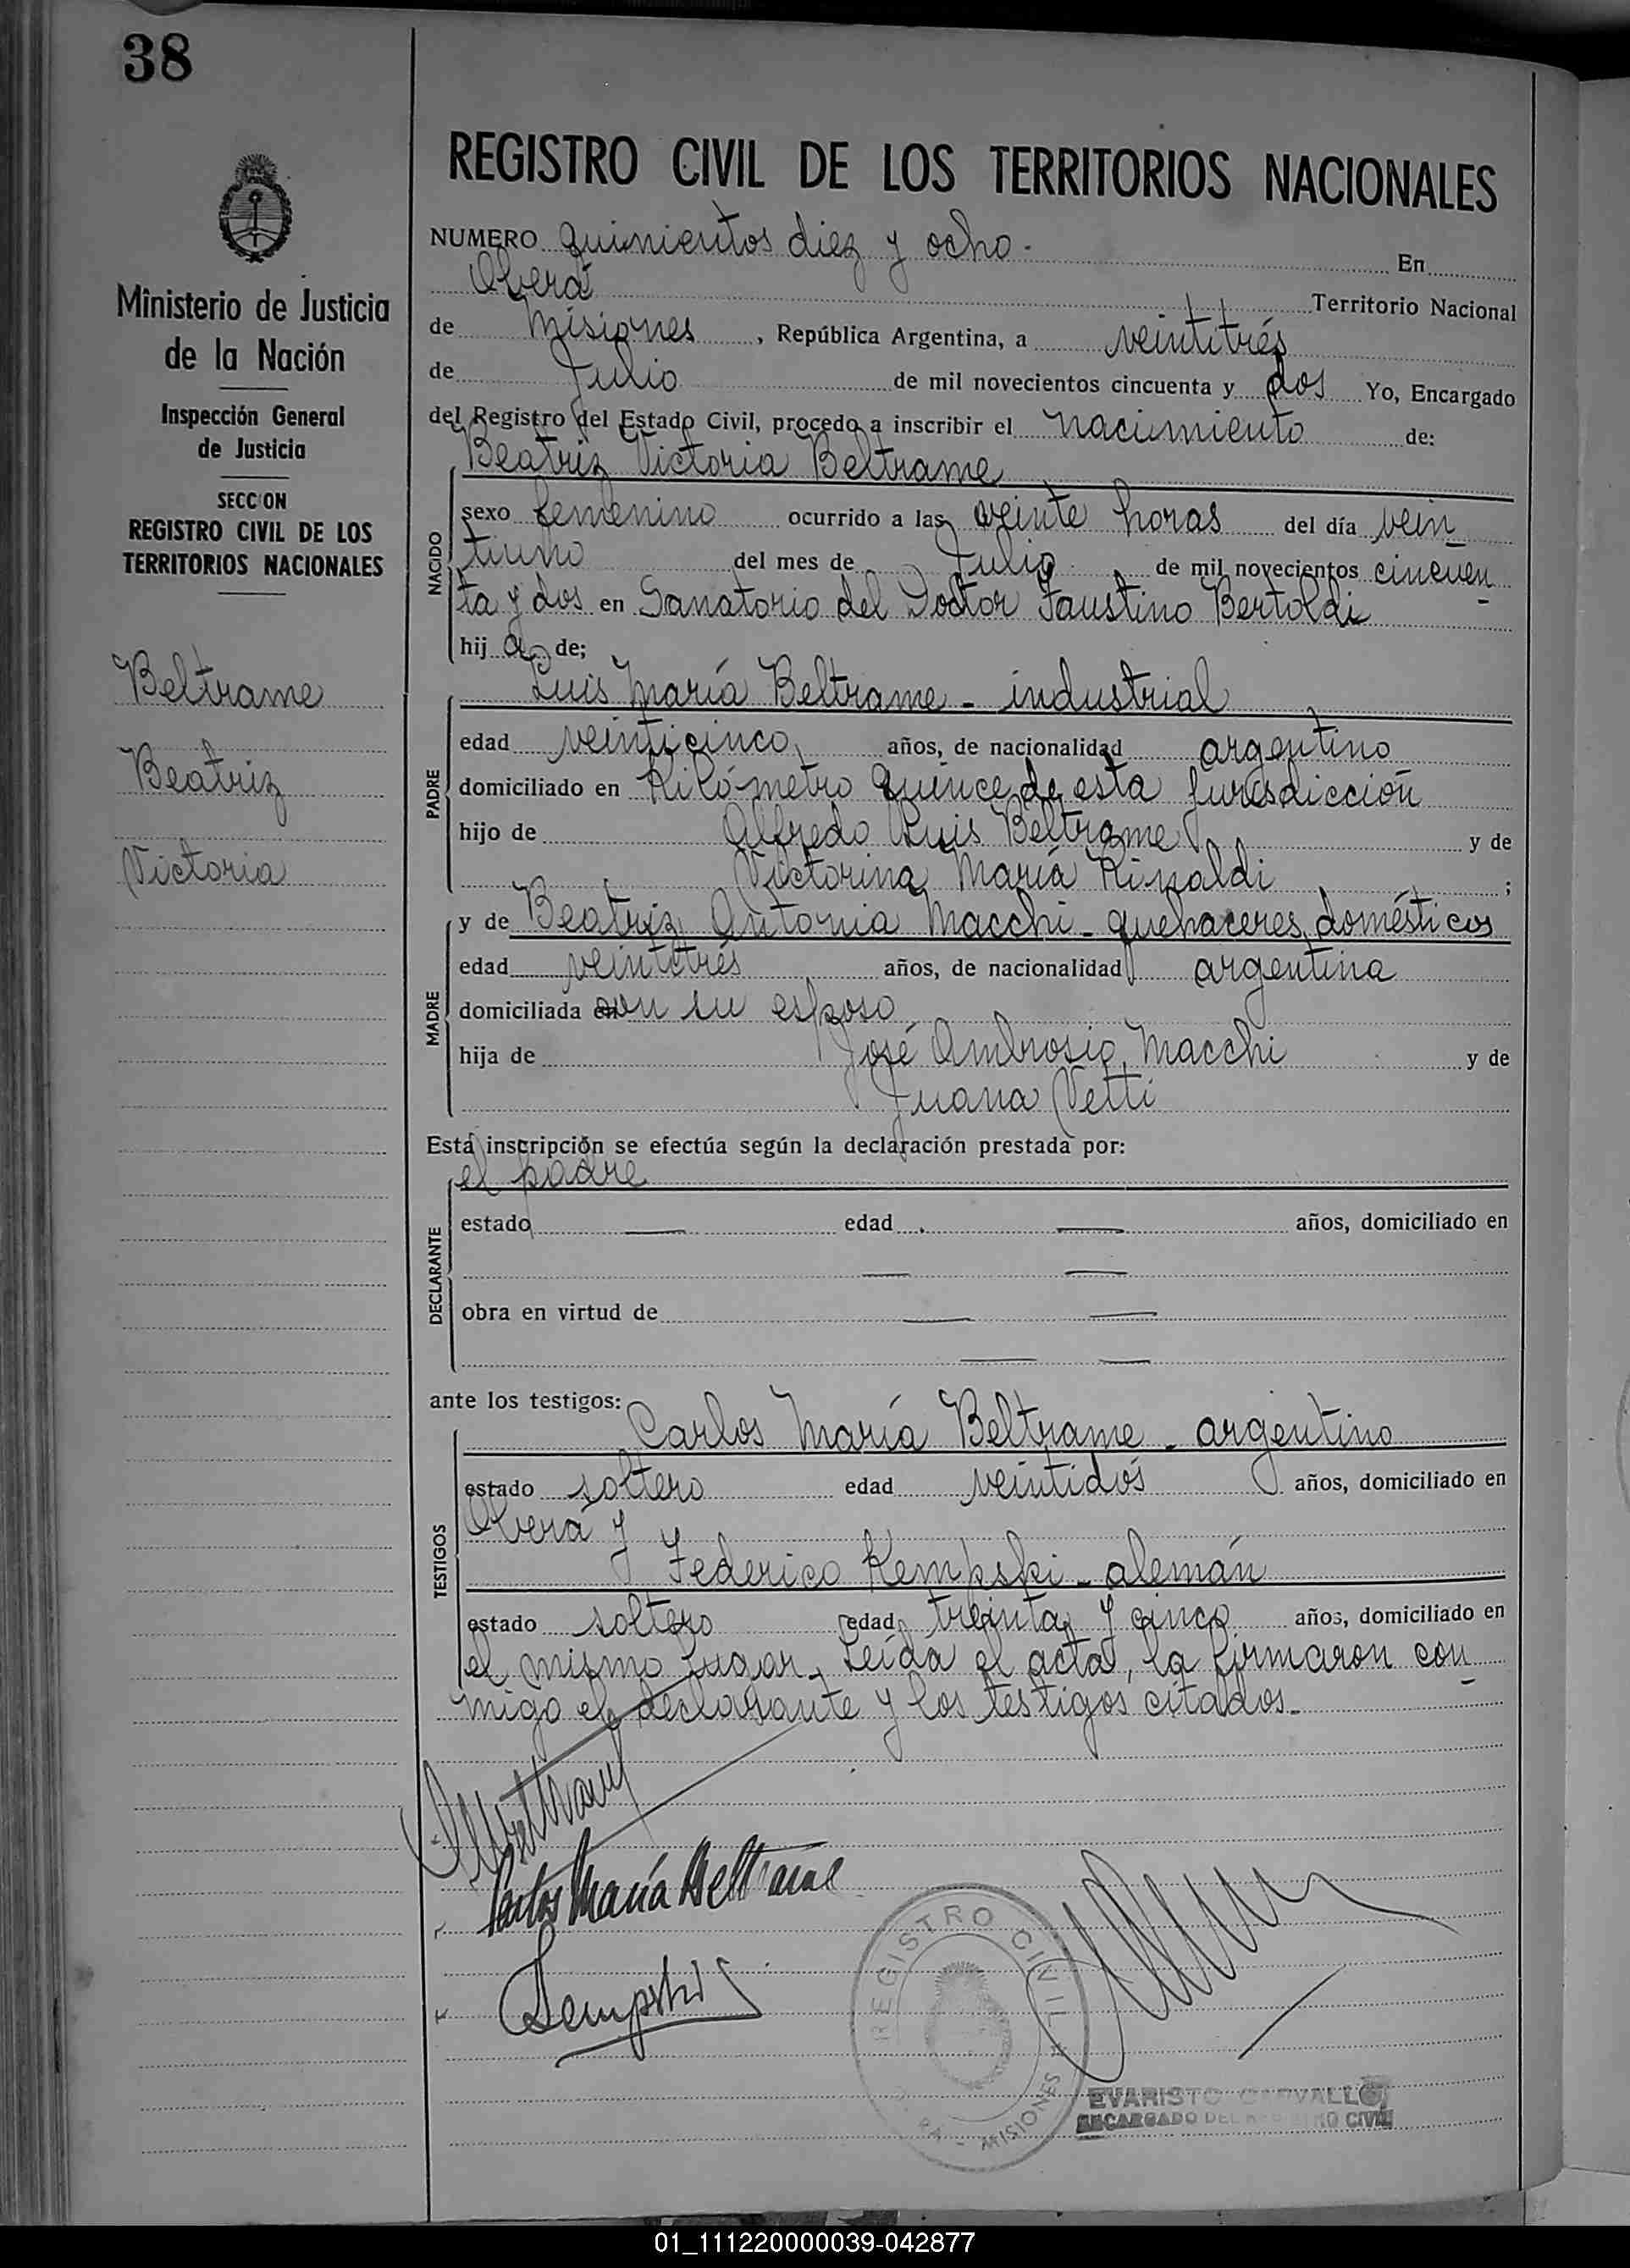 38
Ministerio de Justicia
de la Nación
Inspección General
de Justicia
SECCION
REGISTRO CIVIL DE LOS
TERRITORIOS NACIONALES
Beltrame
Beatriz
Victoria
REGISTRO CIVIL DE LOS TERRITORIOS NACIONALES
NUMERO quinientos diez y ocho.- En
Oberá Territorio Nacional
de Misiones, República Argentina, a veintitrés
de Julio de mil novecientos cincuenta y dos Yo, Encargado
del Registro del Estado Civil, procedo a inscribir el nacimiento de:
Beatriz Victoria Beltrame
NACIDO
sexo femenino ocurrido a las veinte horas del día vein
tiuno del mes de Julio de mil novecientos cincuen
ta y dos en Sanatorio del Doctor Faustino Bertoldi
hij a de;
PADRE
Luis María Beltrame - industrial
edad veinticinco años, de nacionalidad argentino
domiciliado en Kilómetro quince de esta jurisdicción
hijo de Alfredo Luis Beltrame y de
Victorina María Rinaldi ;
MADRE
y de Beatriz Antonia Macchi - quehaceres domésticos
edad veintitrés años, de nacionalidad argentina
domiciliada con su esposo
hija de José Ambrosio Macchi y de
Juana Vetti
Esta inscripción se efectúa según la declaración prestada por:
el padre
DECLARANTE
estado — edad — años, domiciliado en
— —
obra en virtud de — —
— —
ante los testigos:
TESTIGOS
Carlos María Beltrame - argentino
estado soltero edad veintidós años, domiciliado en
Oberá y
Federico Kempski - alemán
estado soltero edad treinta y cinco años, domiciliado en
el mismo lugar. Leída el acta, la firmaron con
migo el declarante y los testigos citados.-
Carlos María Beltrame
Kempski
REGISTRO CIVIL
MISIONES
EVARISTO CARVALLO
ENCARGADO DEL REGISTRO CIVIL
01_111220000039-042877